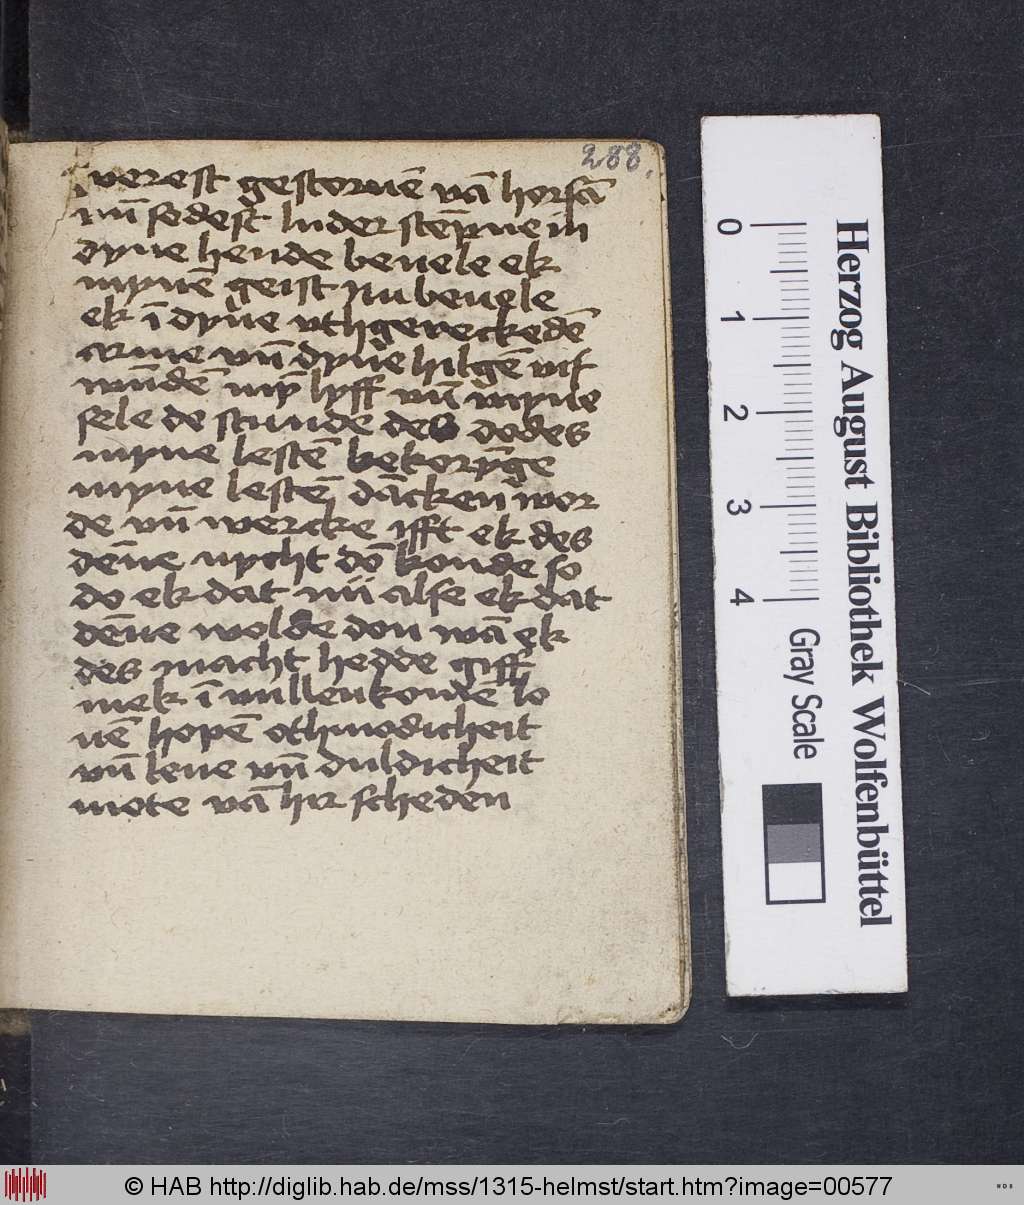 288.
werest gestoruē vā horsā
vn̄ sedest luder stēpne in
dyne hende beuele ek
mynē geist nu beuele
ek ī dyne vthgereckedē
arme vn̄ dyne hilgē vif
wūdē my̅ lyff vn̄ myne
sele de stunde des dodes
myne lestē bekory̅ge
myne lestē dācken wor
de vn̄ wercke ifft ek des
dēne nycht dō konde so
do ek dat nu alse ek dat
dēne wolde don wā ek
des macht hedde giff
mek ī vullenkomē lo
uē hopē othmodicheit
vn̄ leue vn̄ duldicheit
mote vā hir scheden
0 1 2 3 4 Gray Scale
Herzog August Bibliothek Wolfenbüttel
© HAB http://diglib.hab.de/mss/1315-helmst/start.htm?image=00577